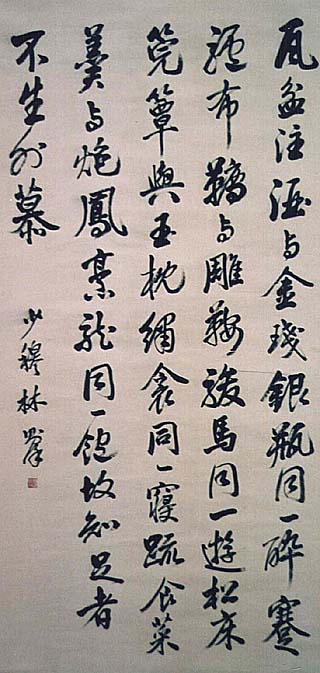 瓦盆注酒与金琖銀瓶同一醉蹇
驢布韉与雕鞍駿馬同一遊松床
筦簟與玉枕衾同一寢疏食菜
羹与炮鳳烹龍同一飽故知足者
不生外慕
少穆林